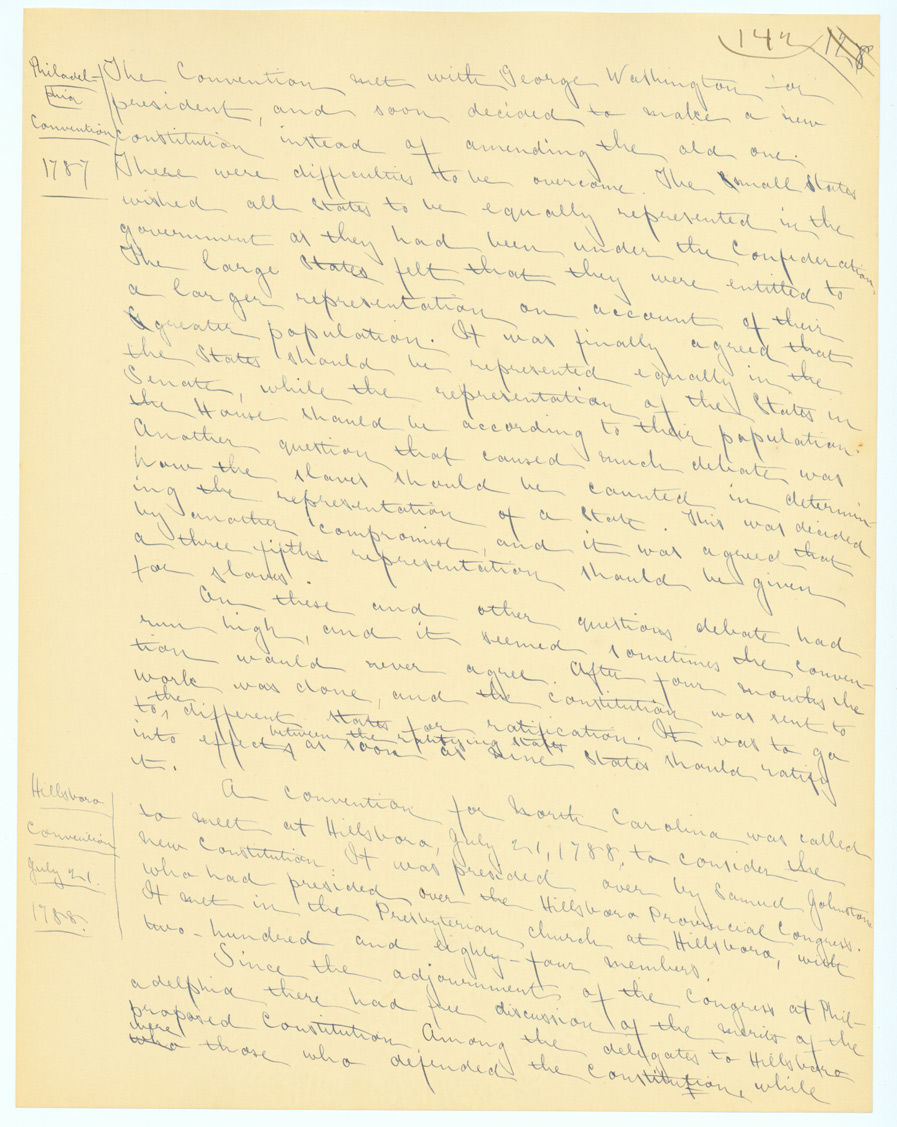 142 128
Philadel-
phia
Convention
1787
The Convention met with George Washington for
president, and soon decided to make a new
constitution instead of amending the old one.
There were difficulties to be overcome. The Small States
wished all states to be equally represented in the
government as they had been under the Confederation.
The large states felt that they were entitled to
a larger representation on account of their
greater population. It was finally agreed that
the States should be represented equally in the
Senate, while the representation of the States in
the House should be according to their population.
Another question that caused much debate was
how the slaves should be counted in determin-
ing the representation of a State. This was decided
by another compromise, and it was agreed that
a three fifths representation should be given
for slaves.
On these and other questions debate had
run high, and it seemed sometimes the conven-
tion would never agree. After four months the
work was done, and the constitution was sent to
to the different states for ratification. It was to go
into effect between the ratifying states as soon as nine States should ratify
it.
Hillsboro
Convention
July 21.
1788.
A convention for North Carolina was called
to meet at Hillsboro, July 21, 1788, to consider the
new Constitution. It was presided over by Samuel Johnston
who had presided over the Hillsboro Provincial Congress.
It met in the Presbyterian church at Hillsboro, with
two-hundred and eighty-four members.
Since the adjournment of the Congress at Phil-
adelphia there had free discussion of the merits of the
proposed Constitution Among the delegates to Hillsboro
were
who those who defended the constitution, while